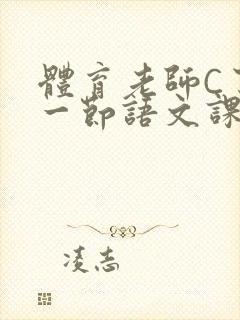 體育老師C
一節語文課
凌志